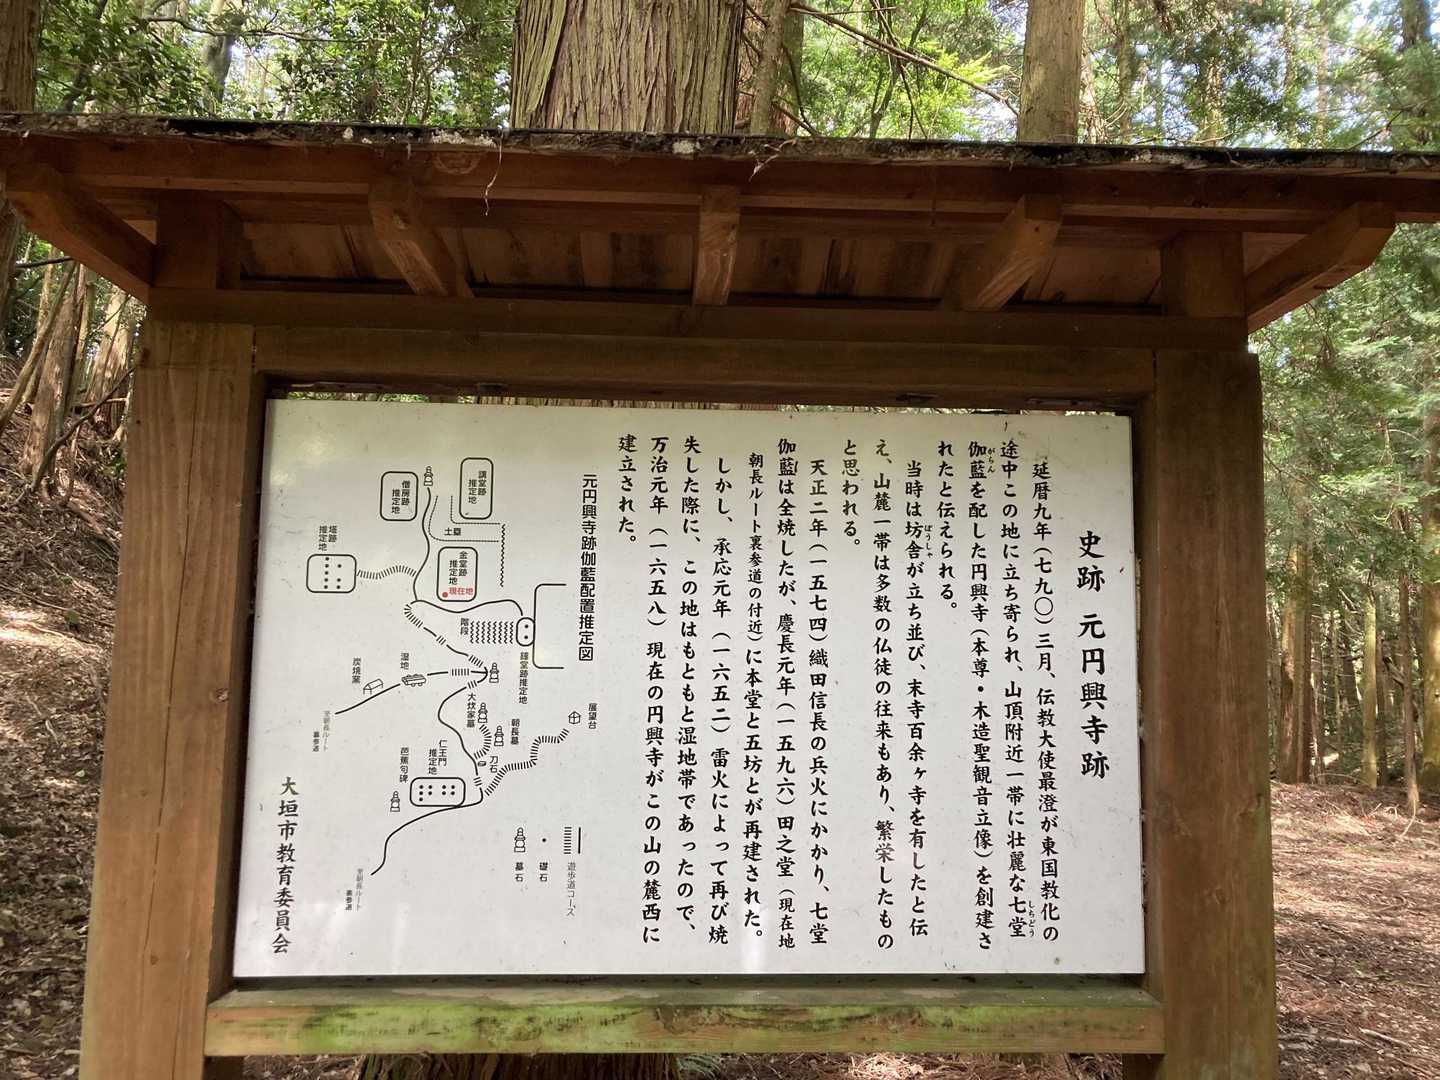 史跡 元円興寺跡
延暦九年（七九〇）三月、伝教大使最澄が東国教化の
途中この地に立ち寄られ、山頂附近一帯に壮麗な七堂
しちどう
伽藍を配した円興寺（本尊・木造聖観音立像）を創建さ
がらん
れたと伝えられる。
当時は坊舎が立ち並び、末寺百余ヶ寺を有したと伝
ぼうしゃ
え、山麓一帯は多数の仏徒の往来もあり、繁栄したもの
と思われる。
天正二年（一五七四）織田信長の兵火にかかり、七堂
伽藍は全焼したが、慶長元年（一五九六）田之堂（現在地
朝長ルート裏参道の付近）に本堂と五坊とが再建された。
しかし、承応元年（一六五二）雷火によって再び焼
失した際に、この地はもともと湿地帯であったので、
万治元年（一六五八）現在の円興寺がこの山の麓西に
建立された。
元円興寺跡伽藍配置推定図
講堂跡
推定地
僧房跡
推定地
土塁
塔跡
推定地
金堂跡
推定地
現在地
階段
鐘堂跡推定地
湿地
炭焼窯
至朝長ルート
裏参道
大炊家墓
朝長墓
刀石
展望台
仁王門
推定地
芭蕉句碑
至朝長ルート
裏参道
遊歩道コース
礎石
墓石
大垣市教育委員会